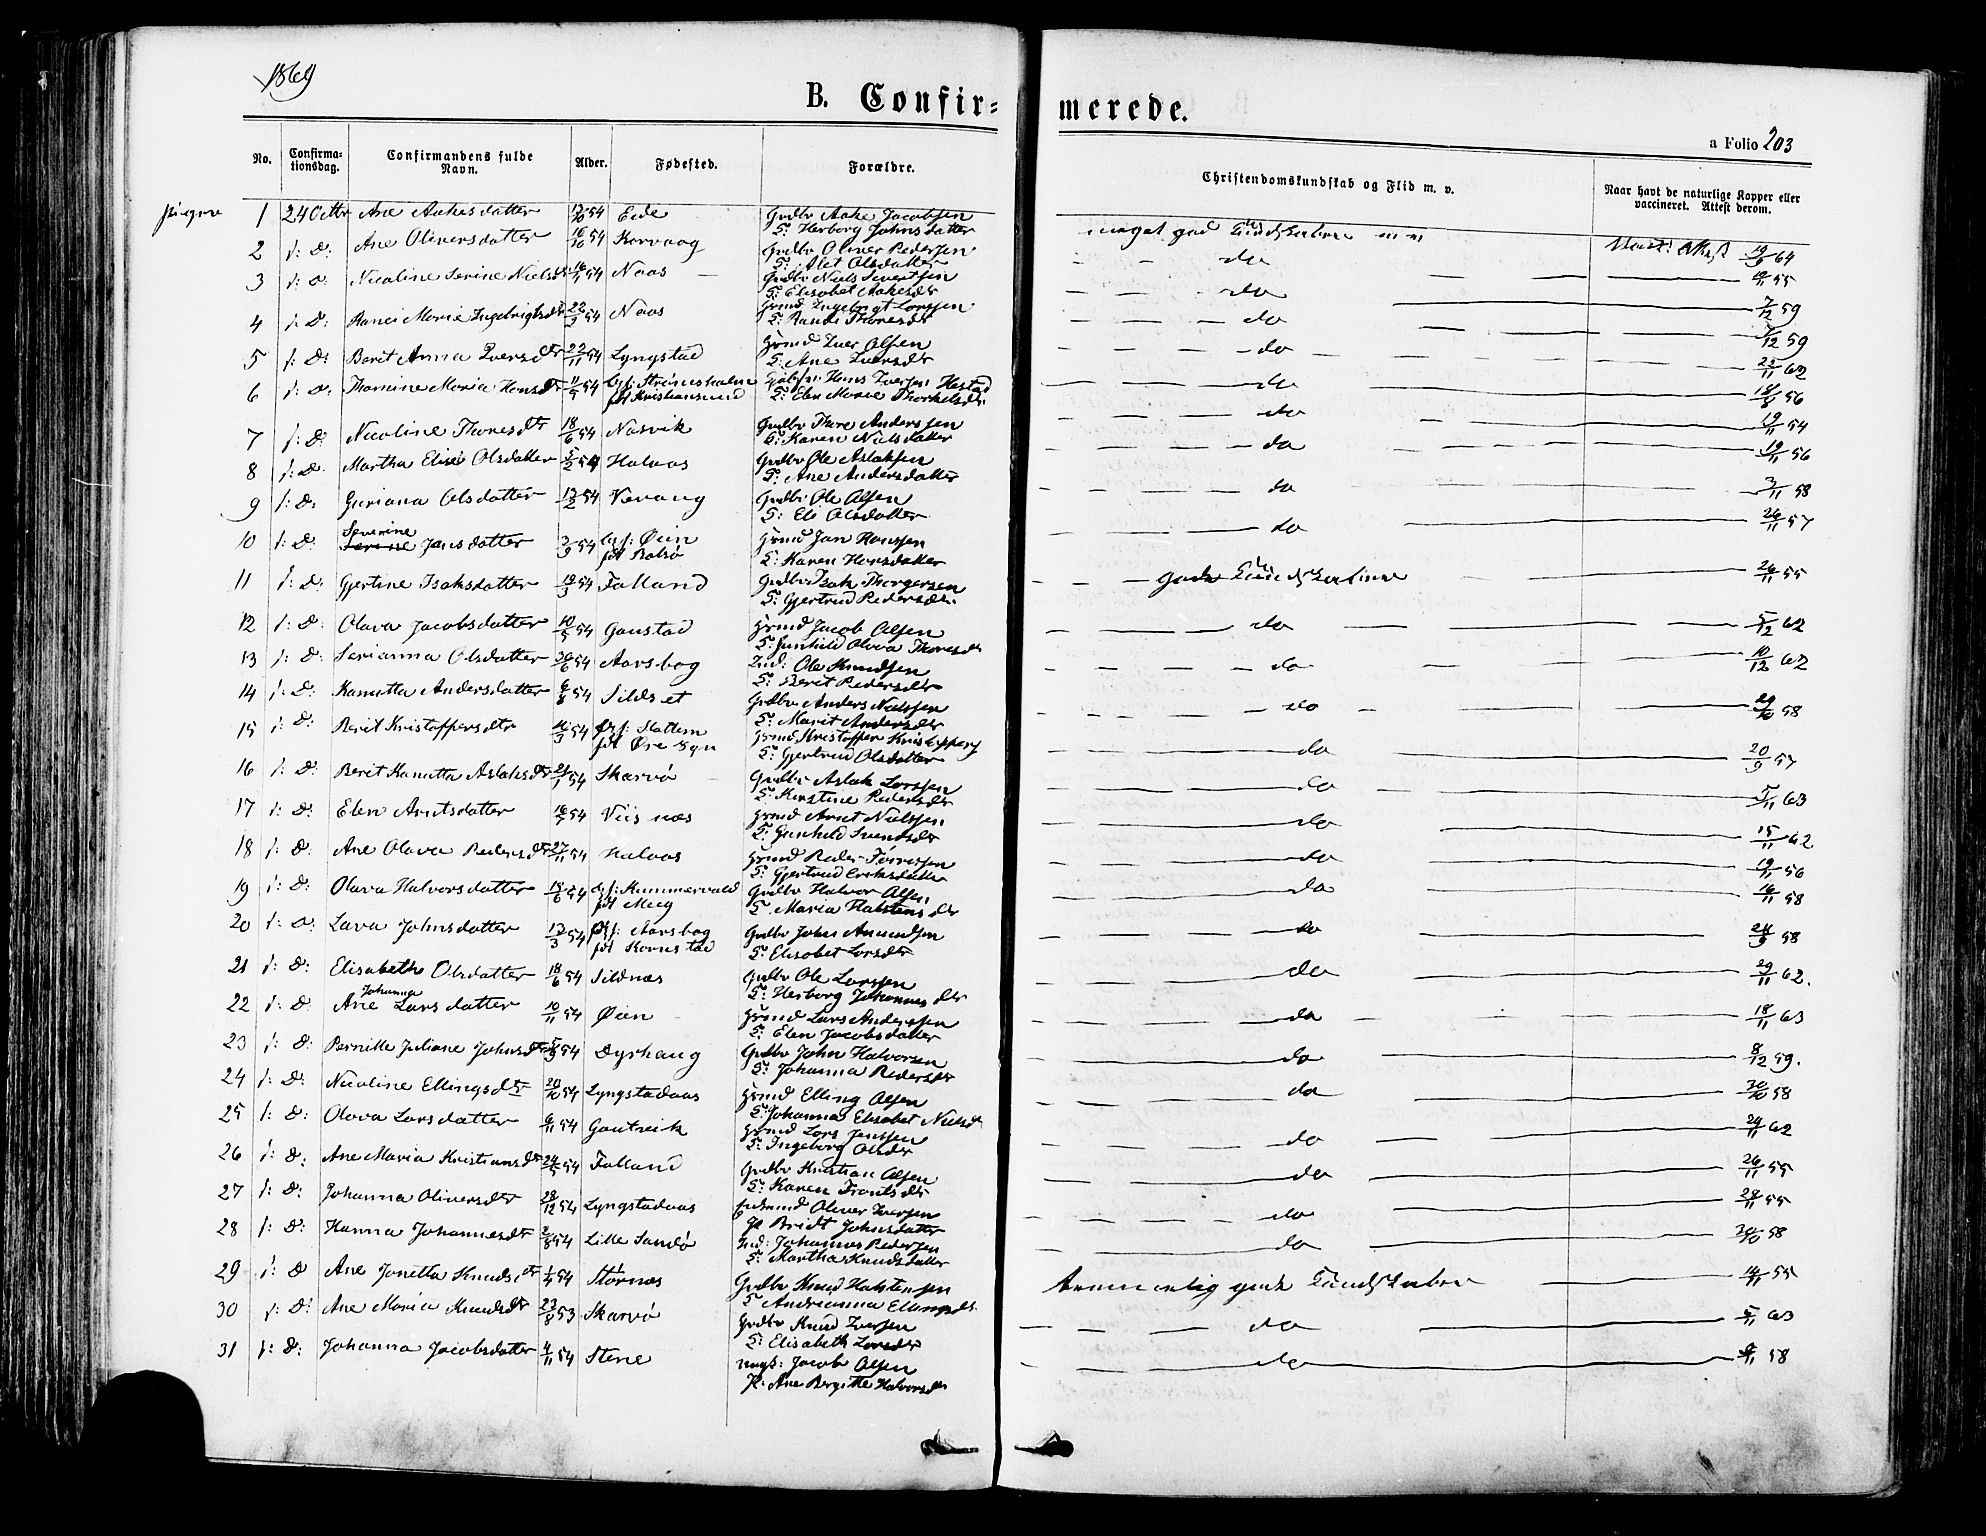 1869
B. Confir-
merede.
a Folio 203
No. Confirma-tionsdag. Confirmandens fulde Navn. Alder. Fødested. Forældre. Christendomskundskab og Flid m. v. Naar havt de naturlige Kopper eller vaccineret. Attest derom.
1 24 Octbr Ane Aakesdatter 54 Eide Grdbr Aake Jacobsen
H: Herborg Johnsdatter meget god Kundskaber 64
2 Ane Oliversdatter 54 Korvaag Grdbr Oliver Pedersen
Olsdatter do 19/11 55
3 Nicoline Serine Nielsdr 54 Naas Grdbr Niels Sivertsen
Elisabet Aakesdr do 7/12 59
4 Marie Ingebrigtsdtr 22/3 54 Naas Grmd Ingebrigt Larssen
Randi Thoresdr do 59
5 Berit Anna Iversdtr 22/11 54 Lyngstad Grmd Iver Olsen
Ane Iversdr do 62
6 Thomine Maria Hansdtr 54 Strømsholm
fdt Kristiansund Hans Iversen Hestad
Elen Marie Thorkelsdr do 56
7 Nicoline Thoresdtr 18/6 54 Nasvik Grdbr Thore Anderssen
Karen Nielsdatter do 19/11 54
8 Martha Elise Olsdatter 5/2 54 Halaas Grdbr Ole Aslaksen
Ane Andersdatter do 19/11 56
9 Guriana Olsdatter 54 Vevang Grdbr Ole Olsen
Eli Olsdatter do 3/11 58
10 Severine
Serine Jansdatter 54 Øien
fdt Bolsø Grmd Jan Hanssen
Karen Hansdatter do 26/11 57
11 Gjertine Isaksdatter 19/3 54 Falland Grdbr Isak Thorgersen
Gjertrud Pedersdr gode Kundskaber 26/11 55
12 Olava Jacobsdatter 10/5 54 Gaustad Grmd Jacob Olsen
Gunhild Olava Thoresdr do 5/12 62
13 Serianna Olsdatter 54 Aarsbog Ind: Ole Knudsen
Berit Pedersdr do 10/12 62
14 Kanutta Andersdatter 6/8 54 Sildset Grdbr Anders Nielssen
Marit Andersdr do 58
15 Berit Kristoffersdtr 54 Slattem
fdt Øre Sgn Grmd Kristoffer
Gjertrud Olsdatter do 20/9 57
16 Berit Kanutta Aslaksdtr 54 Skarvø Grdbr Aslak Larssen
Kirstine Pedersdr do 5/11 63
17 Elen Arntsdatter 54 Viisnæs Grmd Arnt Nielssen
Gunhild Svendsdr do 15/11 62
18 Ane Olava Pedersdtr 27/11 54 Halaas Grmd Peder Tørressen
Gjertrud Eriksdatter do 19/11 56
19 Olava Halvorsdatter 18/6 54 Hammervold
fdt Meeg Grdbr Halvor Olsen
Maria Halstensdr do 16/11 58
20 Lava Johnsdatter 54 Aarsbog
fdt Kornstad Grdbr John Amundsen
Elisabet Larsdtr do 58
21 Elisabeth Olsdatter 18/6 54 Sildnæs Grdbr Ole Larssen
Herborg Johannesdr do 29/11 62.
22 Johanna
Ane Larsdatter 10/11 54 Øien Grmd Lars Anderssen
Elen Jacobsdatter do 18/11 63
23 Pernille Juliane Johnsdtr 54 Dyrhaug Grdbr John Halvorsen
Johanna Pedersdr do 8/12 59.
24 Nicoline Ellingsdtr 54 Lyngstadaas Grmd Elling Olsen
Johanna Elisabet Nielsdr do 58
25 Olava Larsdatter 6/11 54 Gautvik Grmd Lars Jenssen
Ingeborg Olsdr do 29/11 62
26 Ane Maria Kristiansdtr 54 Falland Grdbr Kristian Olsen
Karen do 26/11 55
27 Johanna Oliversdtr 28/12 54 Lyngstadaas Oliver Iversen
Johnsdatter do 55
28 Hanna Johannesdtr 54 Lille Sandø Ind: Johannes Pedersen
Martha Knudsdatter do 58
29 Ane Jonetta Knudsdtr 54 Størnæs Grdbr Knud Halstensen
Andrianna Ellingsdr temmelig gode Kundskaber 55
30 Ane Maria Knudsdtr 23/8 53 Skarvø Grdbr Knud Iversen
Elisabeth Larsdr do 5/11 63
31 Johanna Jacobsdatter 4/11 54 Stene Jacob Olsen
Ane Birgitte Halvorsdr do 58